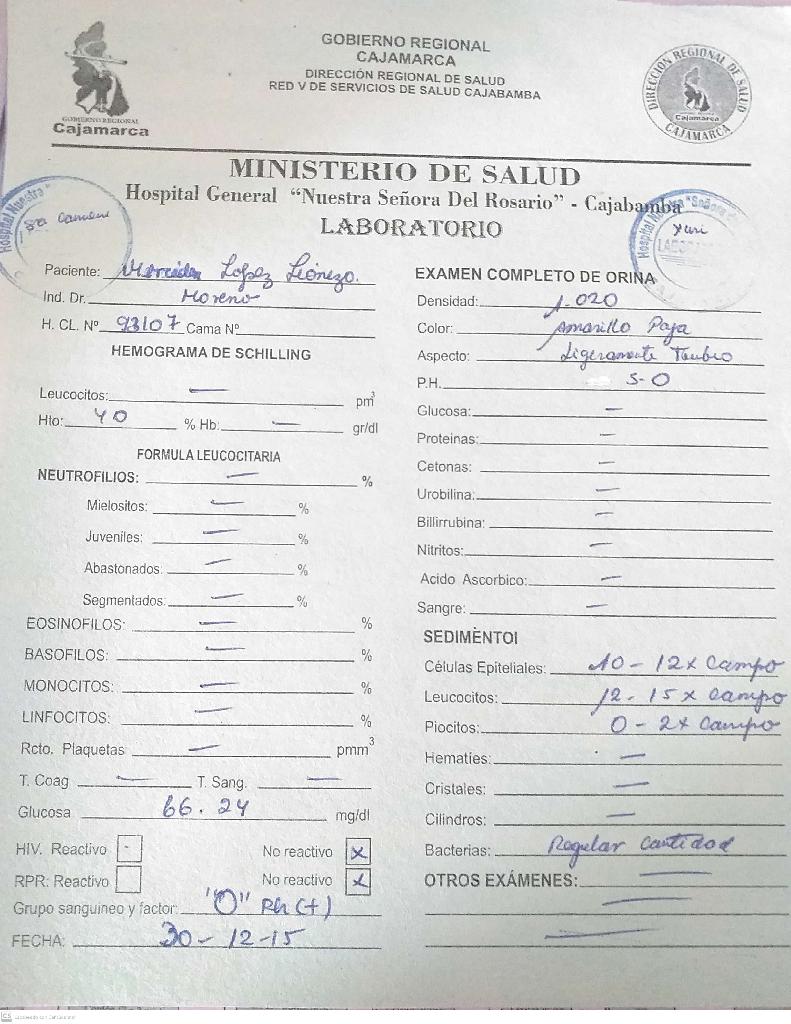 GOBIERNO REGIONAL
CAJAMARCA
DIRECCIÓN REGIONAL DE SALUD
RED V DE SERVICIOS DE SALUD CAJABAMBA
GOBIERNO REGIONAL
Cajamarca
DIRECCIÓN REGIONAL DE SALUD
Cajamarca
CAJAMARCA
MINISTERIO DE SALUD
Hospital General "Nuestra Señora Del Rosario" - Cajabamba
LABORATORIO
Hospital Nuestra
Hospital Nuestra "Señora
Yuri
Paciente: Lopez
Ind. Dr. Moreno
H. CL. Nº 93107 Cama Nº
HEMOGRAMA DE SCHILLING
Leucocitos: — pm3
Hto: 40 % Hb: — gr/dl
FORMULA LEUCOCITARIA
NEUTROFILIOS: — %
Mielositos: — %
Juveniles: — %
Abastonados: — %
Segmentados: — %
EOSINOFILOS: — %
BASOFILOS: — %
MONOCITOS: — %
LINFOCITOS: — %
Rcto. Plaquetas — pmm3
T. Coag — T. Sang. —
Glucosa 66.24 mg/dl
HIV. Reactivo - No reactivo x
RPR: Reactivo No reactivo x
Grupo sanguineo y factor: "O" Rh (+)
FECHA: 30-12-15
EXAMEN COMPLETO DE ORINA
Densidad: 1.020
Color: Amarillo Paja
Aspecto: Ligeramente Turbio
P.H. 5-0
Glucosa: —
Proteinas: —
Cetonas: —
Urobilina: —
Billirrubina: —
Nitritos: —
Acido Ascorbico: —
Sangre: —
SEDIMENTOI
Células Epiteliales: 10-12x Campo
Leucocitos: 12-15x Campo
Piocitos: 0-2x Campo
Hematies: —
Cristales: —
Cilindros: —
Bacterias: Regular Cantidad
OTROS EXÁMENES: —
—
—
CS